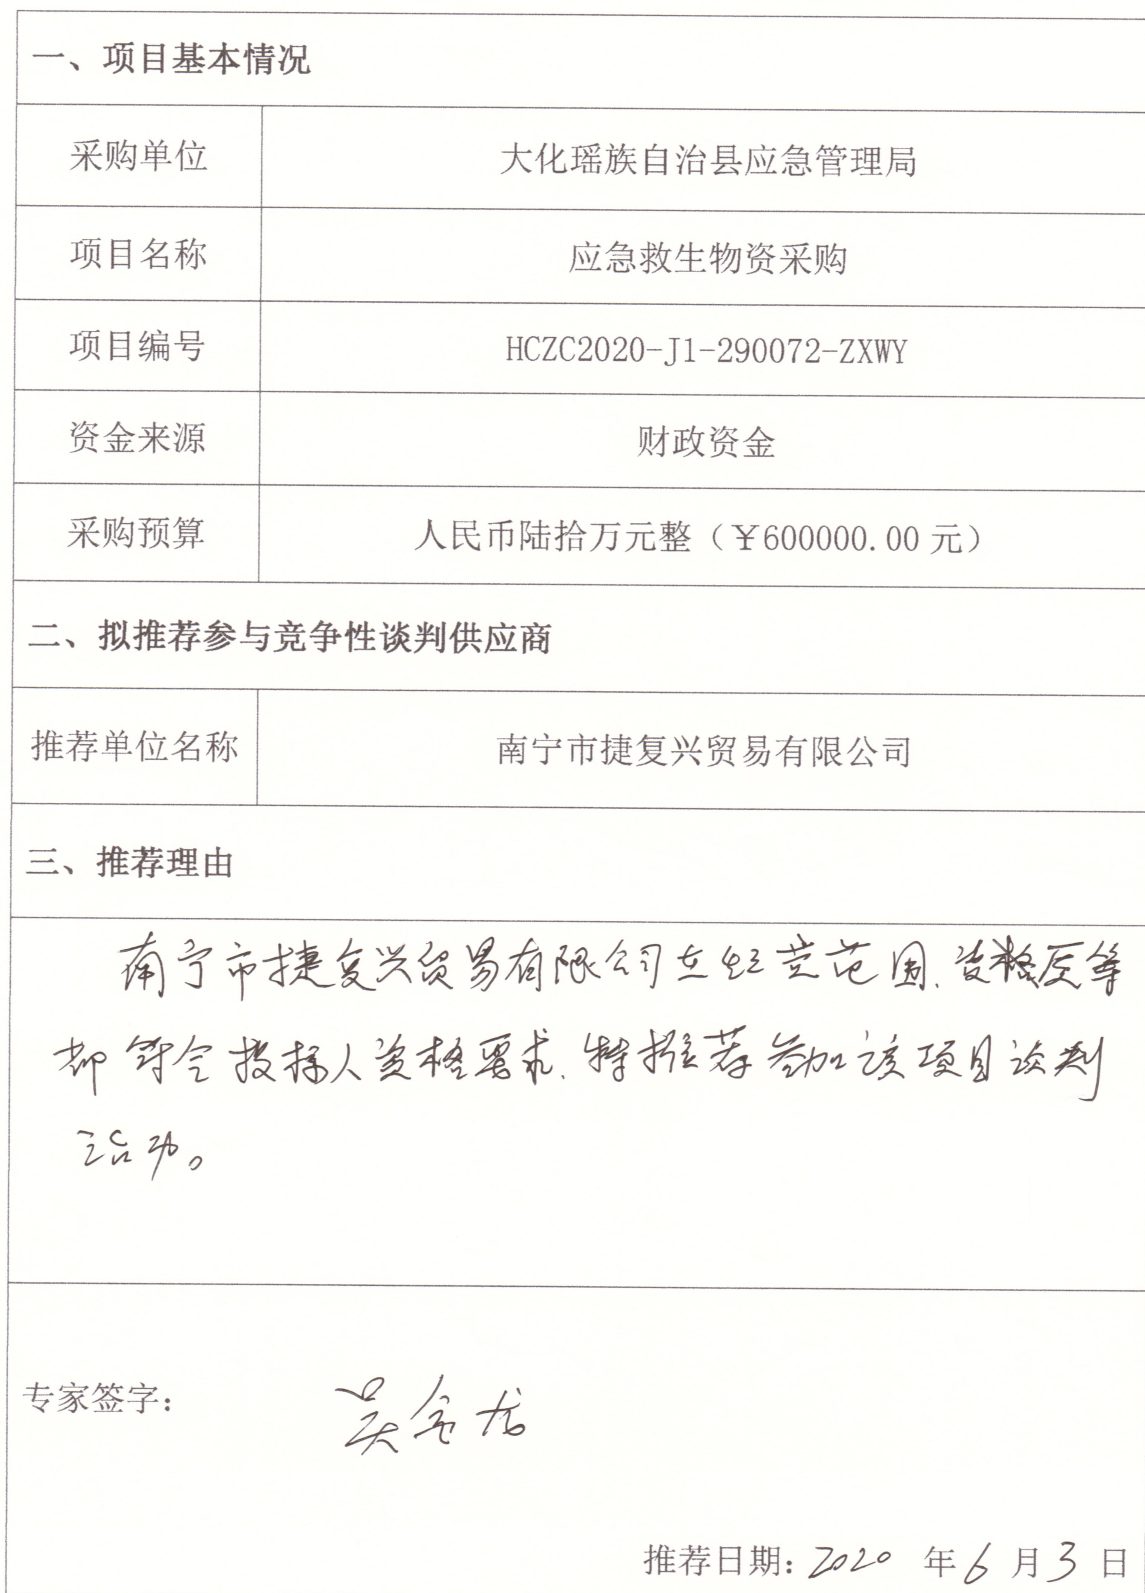 一、项目基本情况
采购单位 大化瑶族自治县应急管理局
项目名称 应急救生物资采购
项目编号 HCZC2020-J1-290072-ZXWY
资金来源 财政资金
采购预算 人民币陆拾万元整（￥600000.00 元）
二、拟推荐参与竞争性谈判供应商
推荐单位名称 南宁市捷复兴贸易有限公司
三、推荐理由
南宁市捷复兴贸易有限公司在经营范围、资格等
都符合投标人资格要求，特推荐参加该项目谈判
活动。
专家签字：
推荐日期：2020 年 6 月 3 日